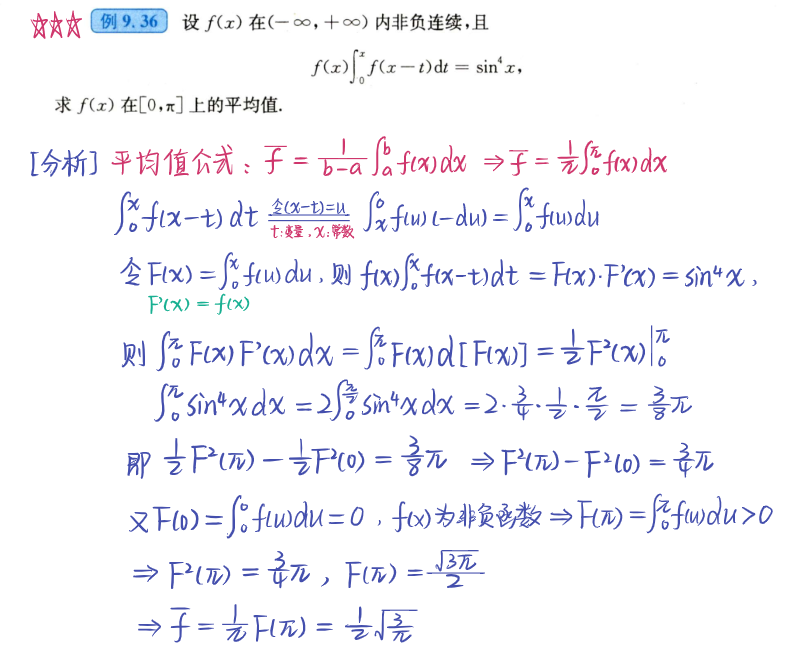 ☆☆☆ 例 9.36 设 f(x) 在(－∞,＋∞) 内非负连续,且
f(x)∫₀ˣ f(x－t)dt = sin⁴x,
求 f(x) 在[0,π] 上的平均值.
[分析] 平均值公式: f̅ = 1/(b-a) ∫ₐᵇ f(x)dx ⇒ f̅ = 1/π ∫₀^π f(x)dx
∫₀ˣ f(x-t) dt =(令(x-t)=u; t:变量, x:常数)= ∫ₓ⁰ f(u)(-du) = ∫₀ˣ f(u)du
令 F(x) = ∫₀ˣ f(u)du, 则 f(x)∫₀ˣ f(x-t)dt = F(x)·F'(x) = sin⁴x,
F'(x) = f(x)
则 ∫₀^π F(x)F'(x)dx = ∫₀^π F(x)d[F(x)] = 1/2 F²(x)|₀^π
∫₀^π sin⁴xdx = 2∫₀^(π/2) sin⁴xdx = 2·3/4·1/2·π/2 = 3/8 π
即 1/2 F²(π) - 1/2 F²(0) = 3/8 π ⇒ F²(π) - F²(0) = 3/4 π
又 F(0) = ∫₀⁰ f(u)du = 0, f(x)为非负函数 ⇒ F(π) = ∫₀^π f(u)du > 0
⇒ F²(π) = 3/4 π, F(π) = √(3π)/2
⇒ f̅ = 1/π F(π) = 1/2 √(3/π)